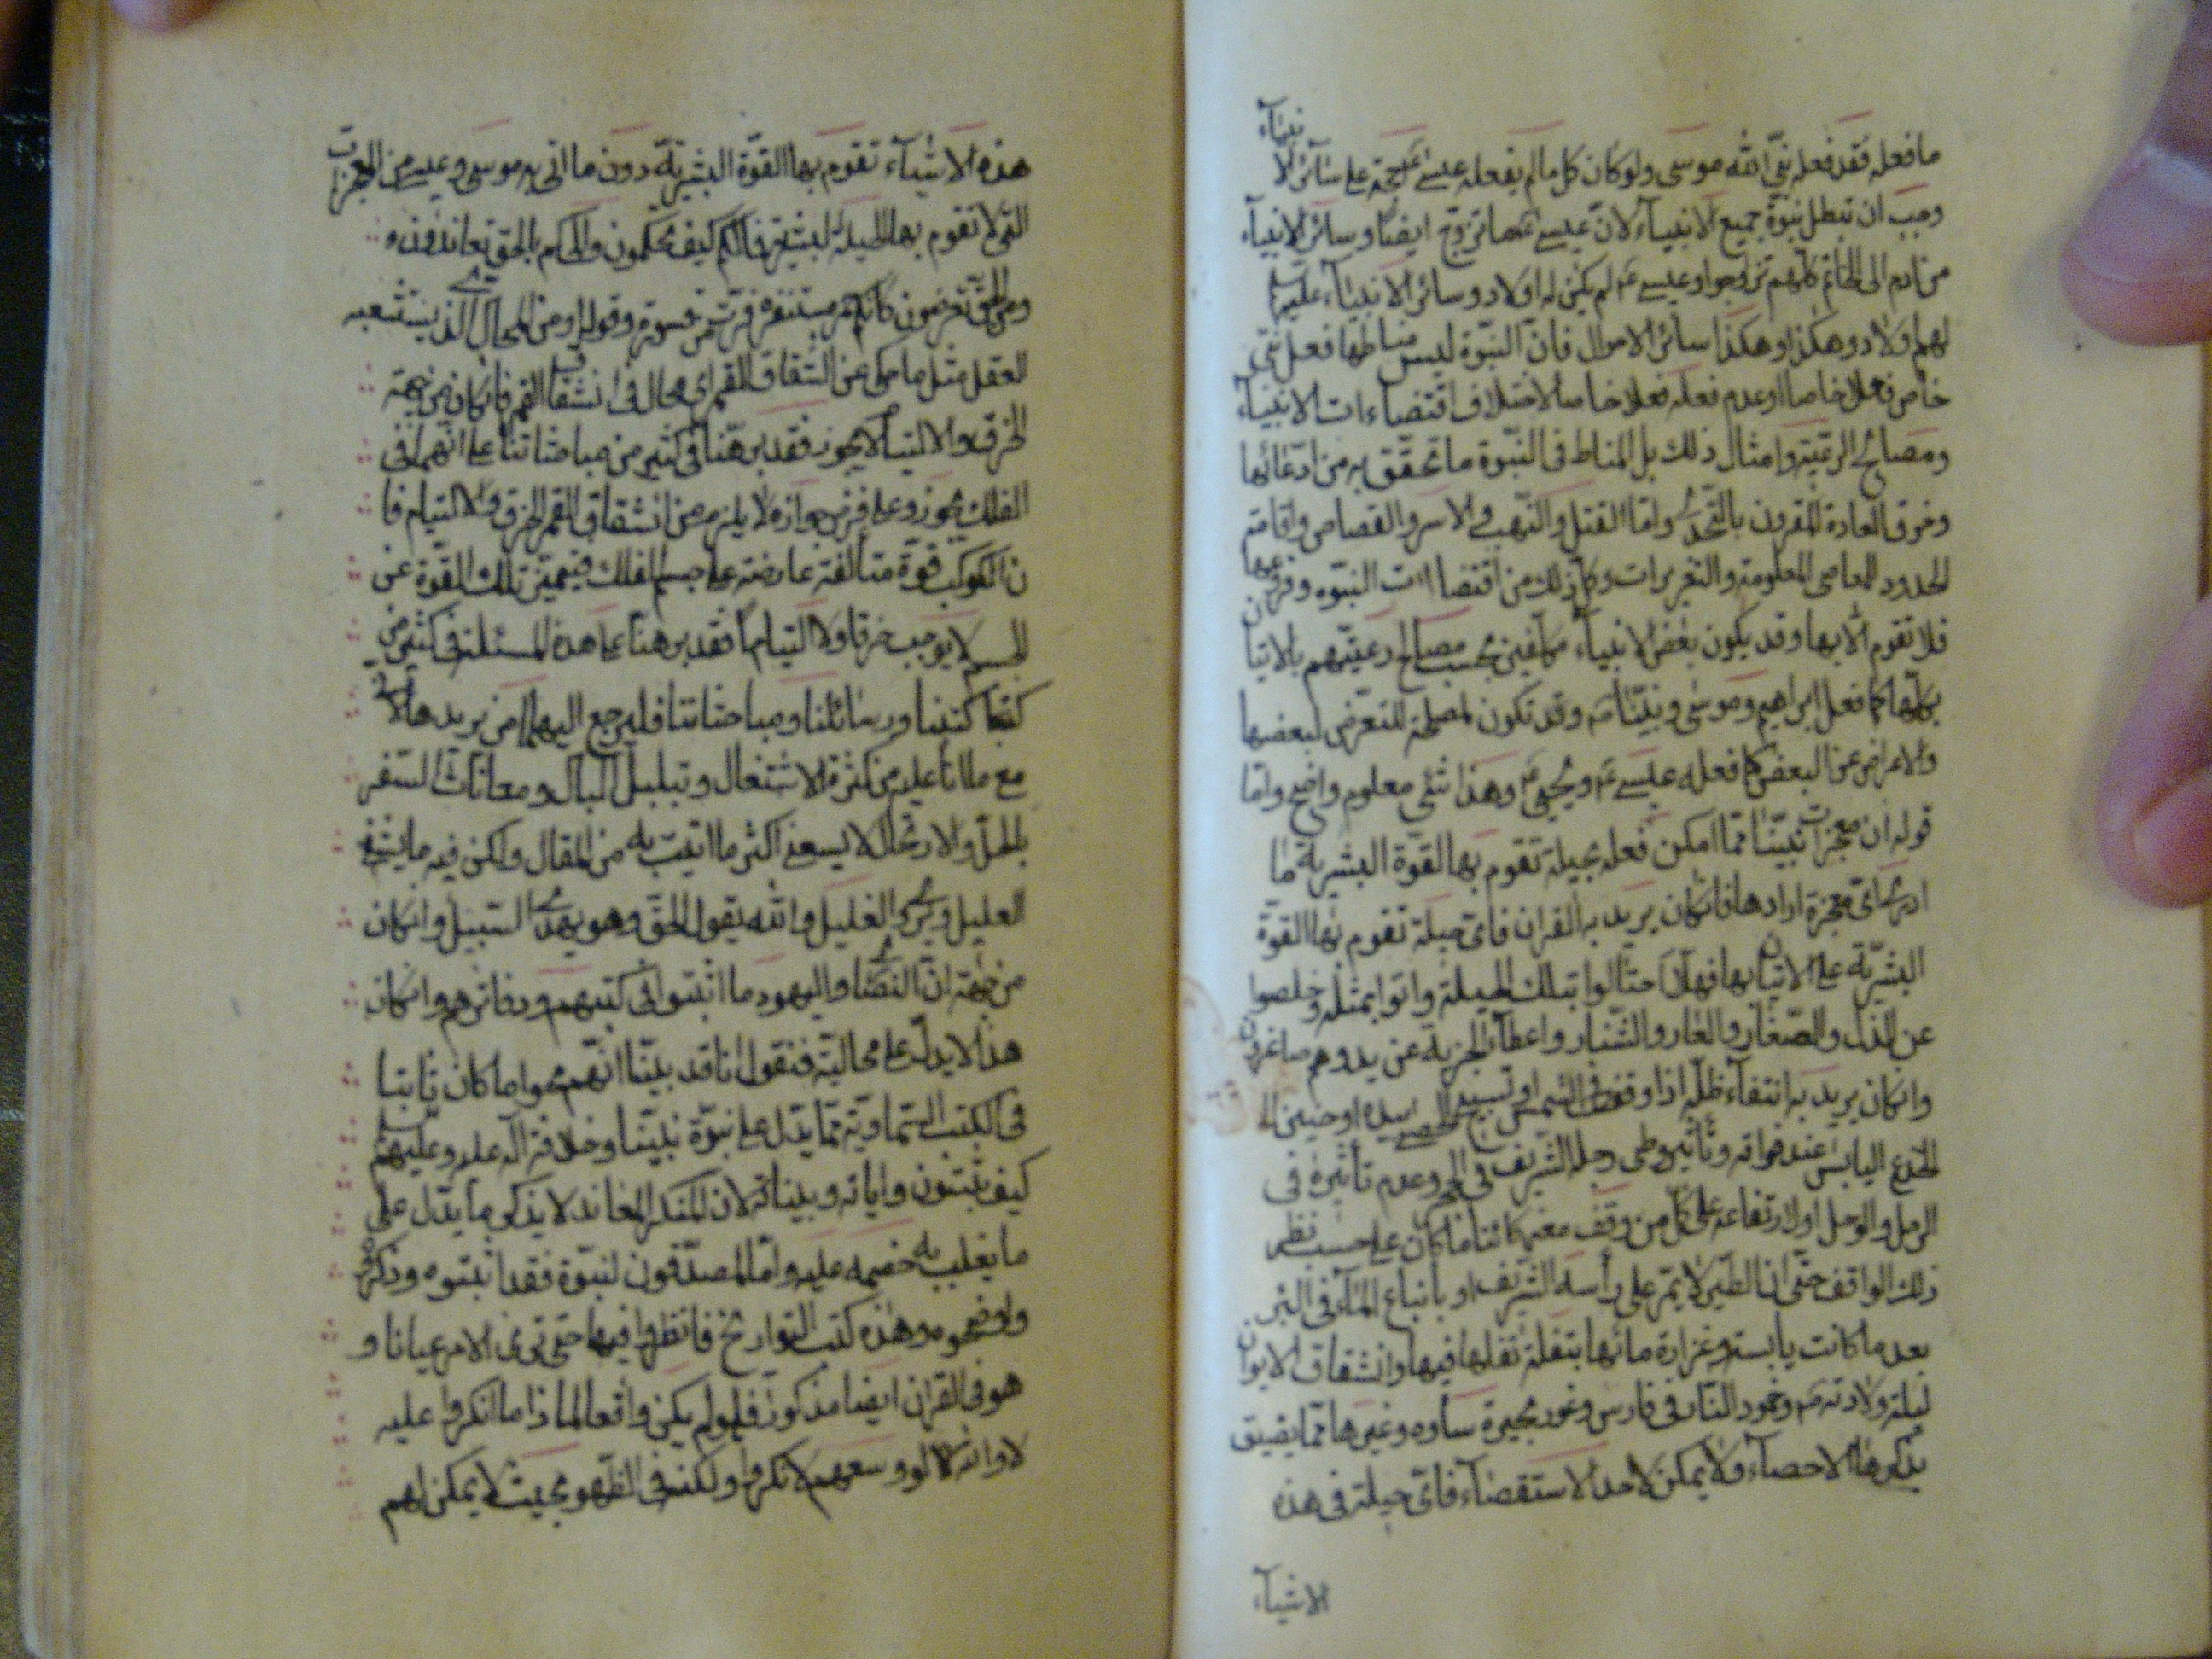 ما فعله فقد فعله نبيّ الله موسى ولو كان كل ما لم يفعله عيسى ع حجة على سآئر الا
نبيآء
وجب ان تبطل نبوّة جميع الانبيآء لانّ عيسى ع ما تزوّج ايضا وسائر الانبيآء
من ادم الى الخاتم كلهم تزوجوا وعيسى ع لم يكن له اولاد وسائر الانبيآء عليهم
لهم اولاد وهكذا وهكذا سائر الاحوال فانّ النبوّة ليس مناطها فعل نبيّ
خاص فعلا خاصا او عدم فعله فعلا خاصا لاختلاف اقتضاءات الانبيآء
ومصالح الرعيّة وامثال ذلك بل المناط فى النبوّة ما تحقّق به من ادّعائها
وخرق العادة المقرون بالتّحدى وامّا القتل والنّهب والاسر والقصاص واقامة
الحدود للمعاصى المعلومة والتعزيرات وكل ذلك من اقتضاات النبوّه وفروعها
فلا تقوم الّا بها وقد يكون بعض الانبيآء مكلفين بحسب مصالح رعيّتهم بالاتيان
بكلّها كما فعل ابراهيم وموسى ونبيّنا ص وقد تكون المصلحة التعرّض لبعضها
والاعراض عن البعض كما فعله عيسى ع ويحيى ع وهذا شئى معلوم واضح وامّا
قوله ان معجزات نبيّنا ممّا امكن فعله بحيلة تقوم بها القوّة البشرية ما
ادرى اىّ معجزة ارادها فان كان يريد به القران فاىّ حيلة تقوم بها القوّة
البشريّة على الاتيان بها فهلّا احتالوا بتلك الحيلة واتوا بمثله وخلصوا
عن الذل والصّغار والعار والشّنار واعطآء الجزية عن يد وهم صاغرون
وان كان يريد به انتفآء ظلّه اذا وقف فى الشمس او تسبيح الحصى بيده او حنين ال
الجذع اليابس عند فراقه وتأثير وطى رجله الشريف فى الحجر وعدم تأثيره فى
الرمل والوحل او لارتفاعه على كل من وقف معه كائنا ما كان على حسب نظر
ذلك الواقف حتّى انّ الطّير لا يمرّ على رأسه الشّريف او بانباع المآء فى البئر
بعد ما كانت يابسة وغزارة مائها بتفلة تفلها فيها وانشقاق الايوان
ليلة ولادته ص وخمود النّار فى فارس وغور بحيرة ساوه وغيرها ممّا يضيق
بذكرها الاحصآء ولا يمكن لاحد الاستقصآء فاىّ حيلة فى هذه
الاشيآء
هذه الاشيآء تقوم بها القوّة البشريّة دون ما اتى به موسى وعيسى من المعجزات
التى لا تقوم بها الحيلة البشريّة فما لكم كيف تحكمون والحاكم بالحق تعاندون و
ومن الحق تعرضون كانّكم حمر مستنفرة فرّت من قسورة وقوله ومن المحال الذى يستتبعه
العقل مثل ما حكى عن انشقاق القمر اى محال فى انشقاق القمر فان كان من جهة
الخرق والالتيام لا يجوز فقد برهنّا فى كثير من مباحثاتنا على انّهما فى
الفلك يجوز وعلى فرض جوازه لا يلزم من انشقاق القمر الخرق والالتيام فا
ن الكوكب قوة متألفة عارضة على جسم الفلك فيميّز تلك القوّة عن
الجسم لا يوجب خرقا ولا التياما فقد برهنا على هذه المسئلة فى كثير من
كتبنا ورسائلنا ومباحثاتنا فليرجع اليها من يريدها لانّى
مع ما انا عليه من كثرة الاشتغال وتبلبل البال ومعانات السّفر
بالحلّ والارتحال لا يسعنى اكثر ما اتيت به من المقال ولكن فيه ما يشفى
العليل ويبرد الغليل والله يقول الحقّ وهو يهدى السّبيل وان كان
من جهة انّ النّصارى واليهود ما اثبتوا فى كتبهم ودفاترهم وان كان
هذا لا يدلّ على محاليّته فنقول انا قد بيّنّا انّهم محوا ما كان ثابتا
فى الكتب السّماويّة ممّا يدلّ على نبوّة نبيّنا وخلافة اله عليه وعليهم السلم
كيف يثبتون واياته وبيناته لان المنكر المعاند لا يذكر ما يدّل على
ما يغلب به خصمه عليه وامّا المصدّقون لنبوّة فقد اثبتوه وذكروه
واوضحوه وهذه كتب التّواريخ فانظروا فيها حتى ترى الامر عيانا و
هو فى القران ايضا مذكور فلو لم يكن واقعا لماذا ما انكروا عليه
لا والله لو وسعهم لانكروا ولكنه فى الظّهور بحيث لا يمكن لهم